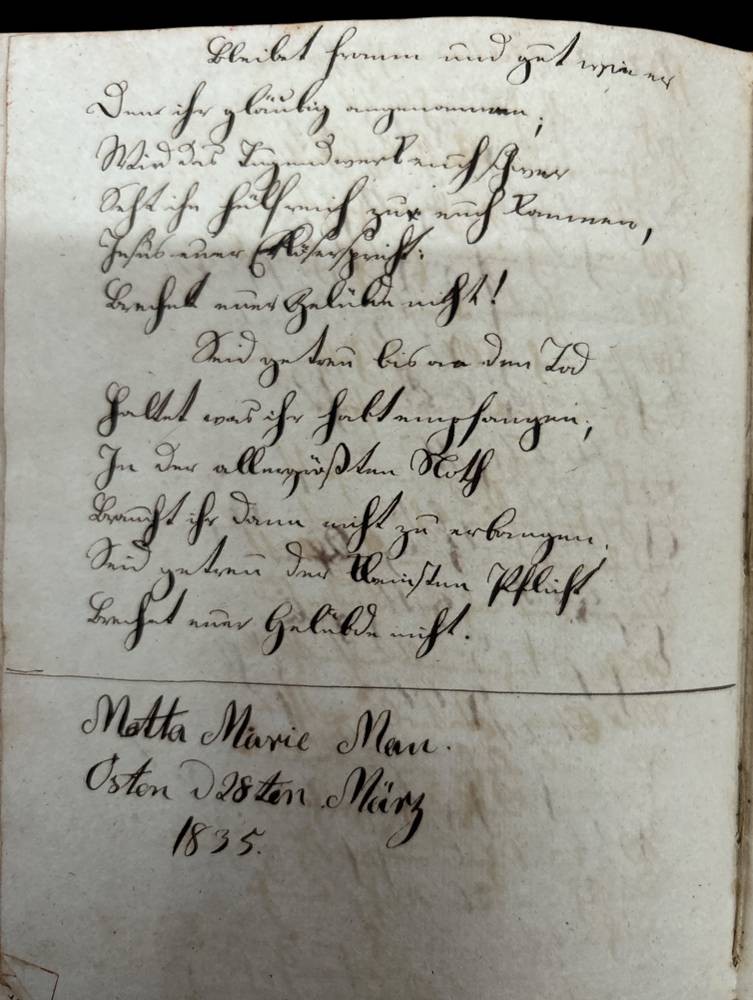 Bleibet fromm und gut wie er
Den ihr gläubig angenommen;
Wird das Tugendwerk euch schwer
Seht ihn hülfreich zur euch kommen,
Jesus euer Erlöser spricht:
Brechet euer Gelübde nicht!
Seid getreu bis an den Tod
Haltet was ihr habt empfangen;
In der allergrößten Noth
Braucht ihr dann nicht zu erbangen.
Seid getreu der kleinsten Pflicht
Brechet euer Gelübde nicht.
Metta Marie Man.
Osten D 28ten März
1835.